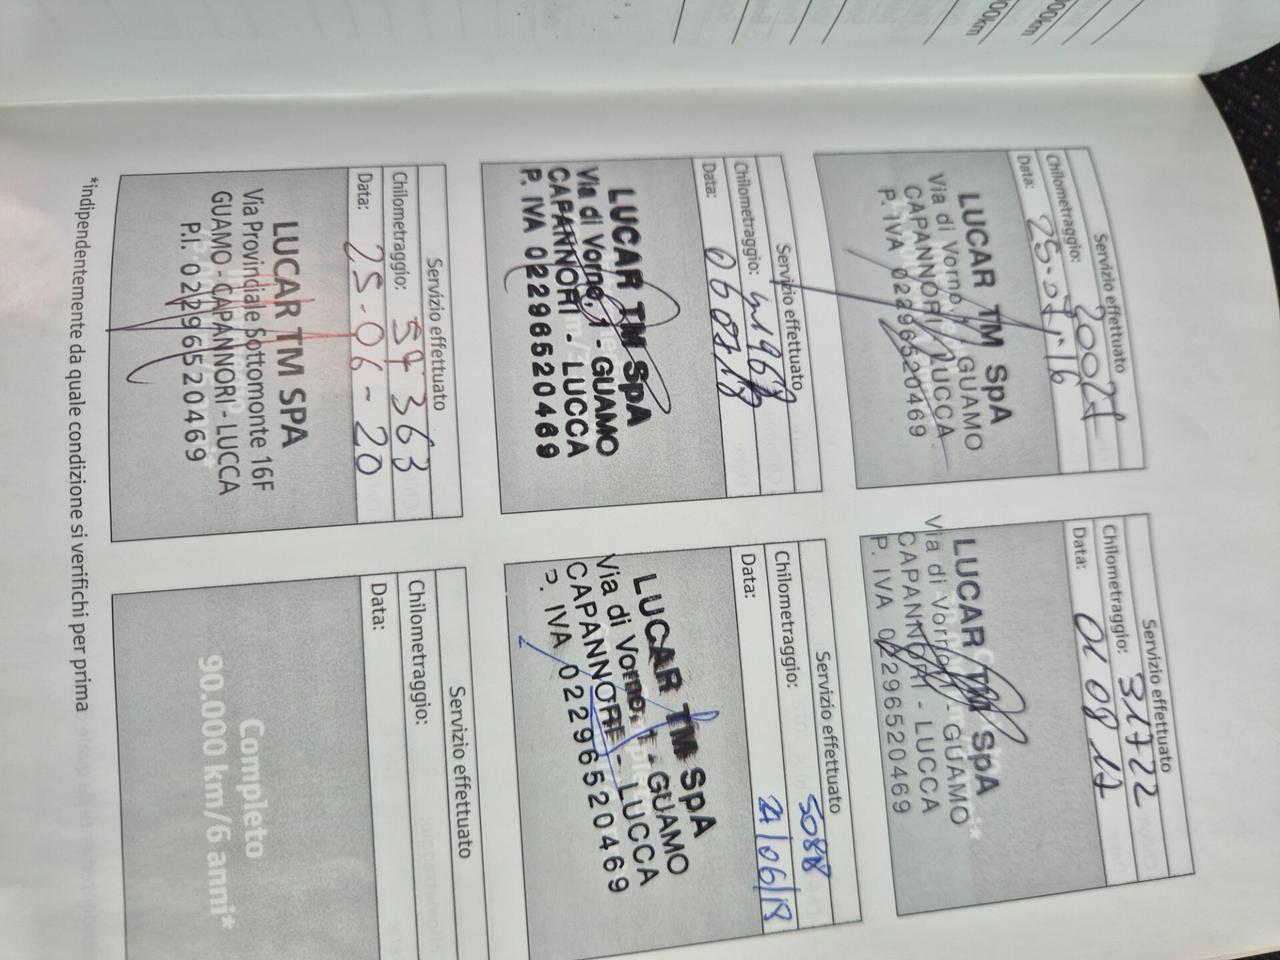 Servizio effettuato
Chilometraggio:
Data: 25.07.16
LUCAR TM SpA
Via di Vorno, GUAMO
CAPANNORI LUCCA
P. IVA 02296520469
Servizio effettuato
Chilometraggio: 31722
Data: 01 08 17
LUCAR TM SpA
Via di Vorno, GUAMO
CAPANNORI - LUCCA
P. IVA 02296520469
Servizio effettuato
Chilometraggio:
Data: 06 07 18
LUCAR TM SpA
Via di Vorno, 1 - GUAMO
CAPANNORI - LUCCA
P. IVA 02296520469
Servizio effettuato
Chilometraggio:
Data: 21/06/19
LUCAR TM SpA
Via di Vorno, 1 - GUAMO
CAPANNORI - LUCCA
P. IVA 02296520469
Servizio effettuato
Chilometraggio: 57 363
Data: 25-06-20
LUCAR TM SPA
Via Provinciale Sottomonte 16F
GUAMO - CAPANNORI - LUCCA
P.I. 02296520469
Servizio effettuato
Chilometraggio:
Data:
Completo
90.000 km/6 anni*
*indipendentemente da quale condizione si verifichi per prima